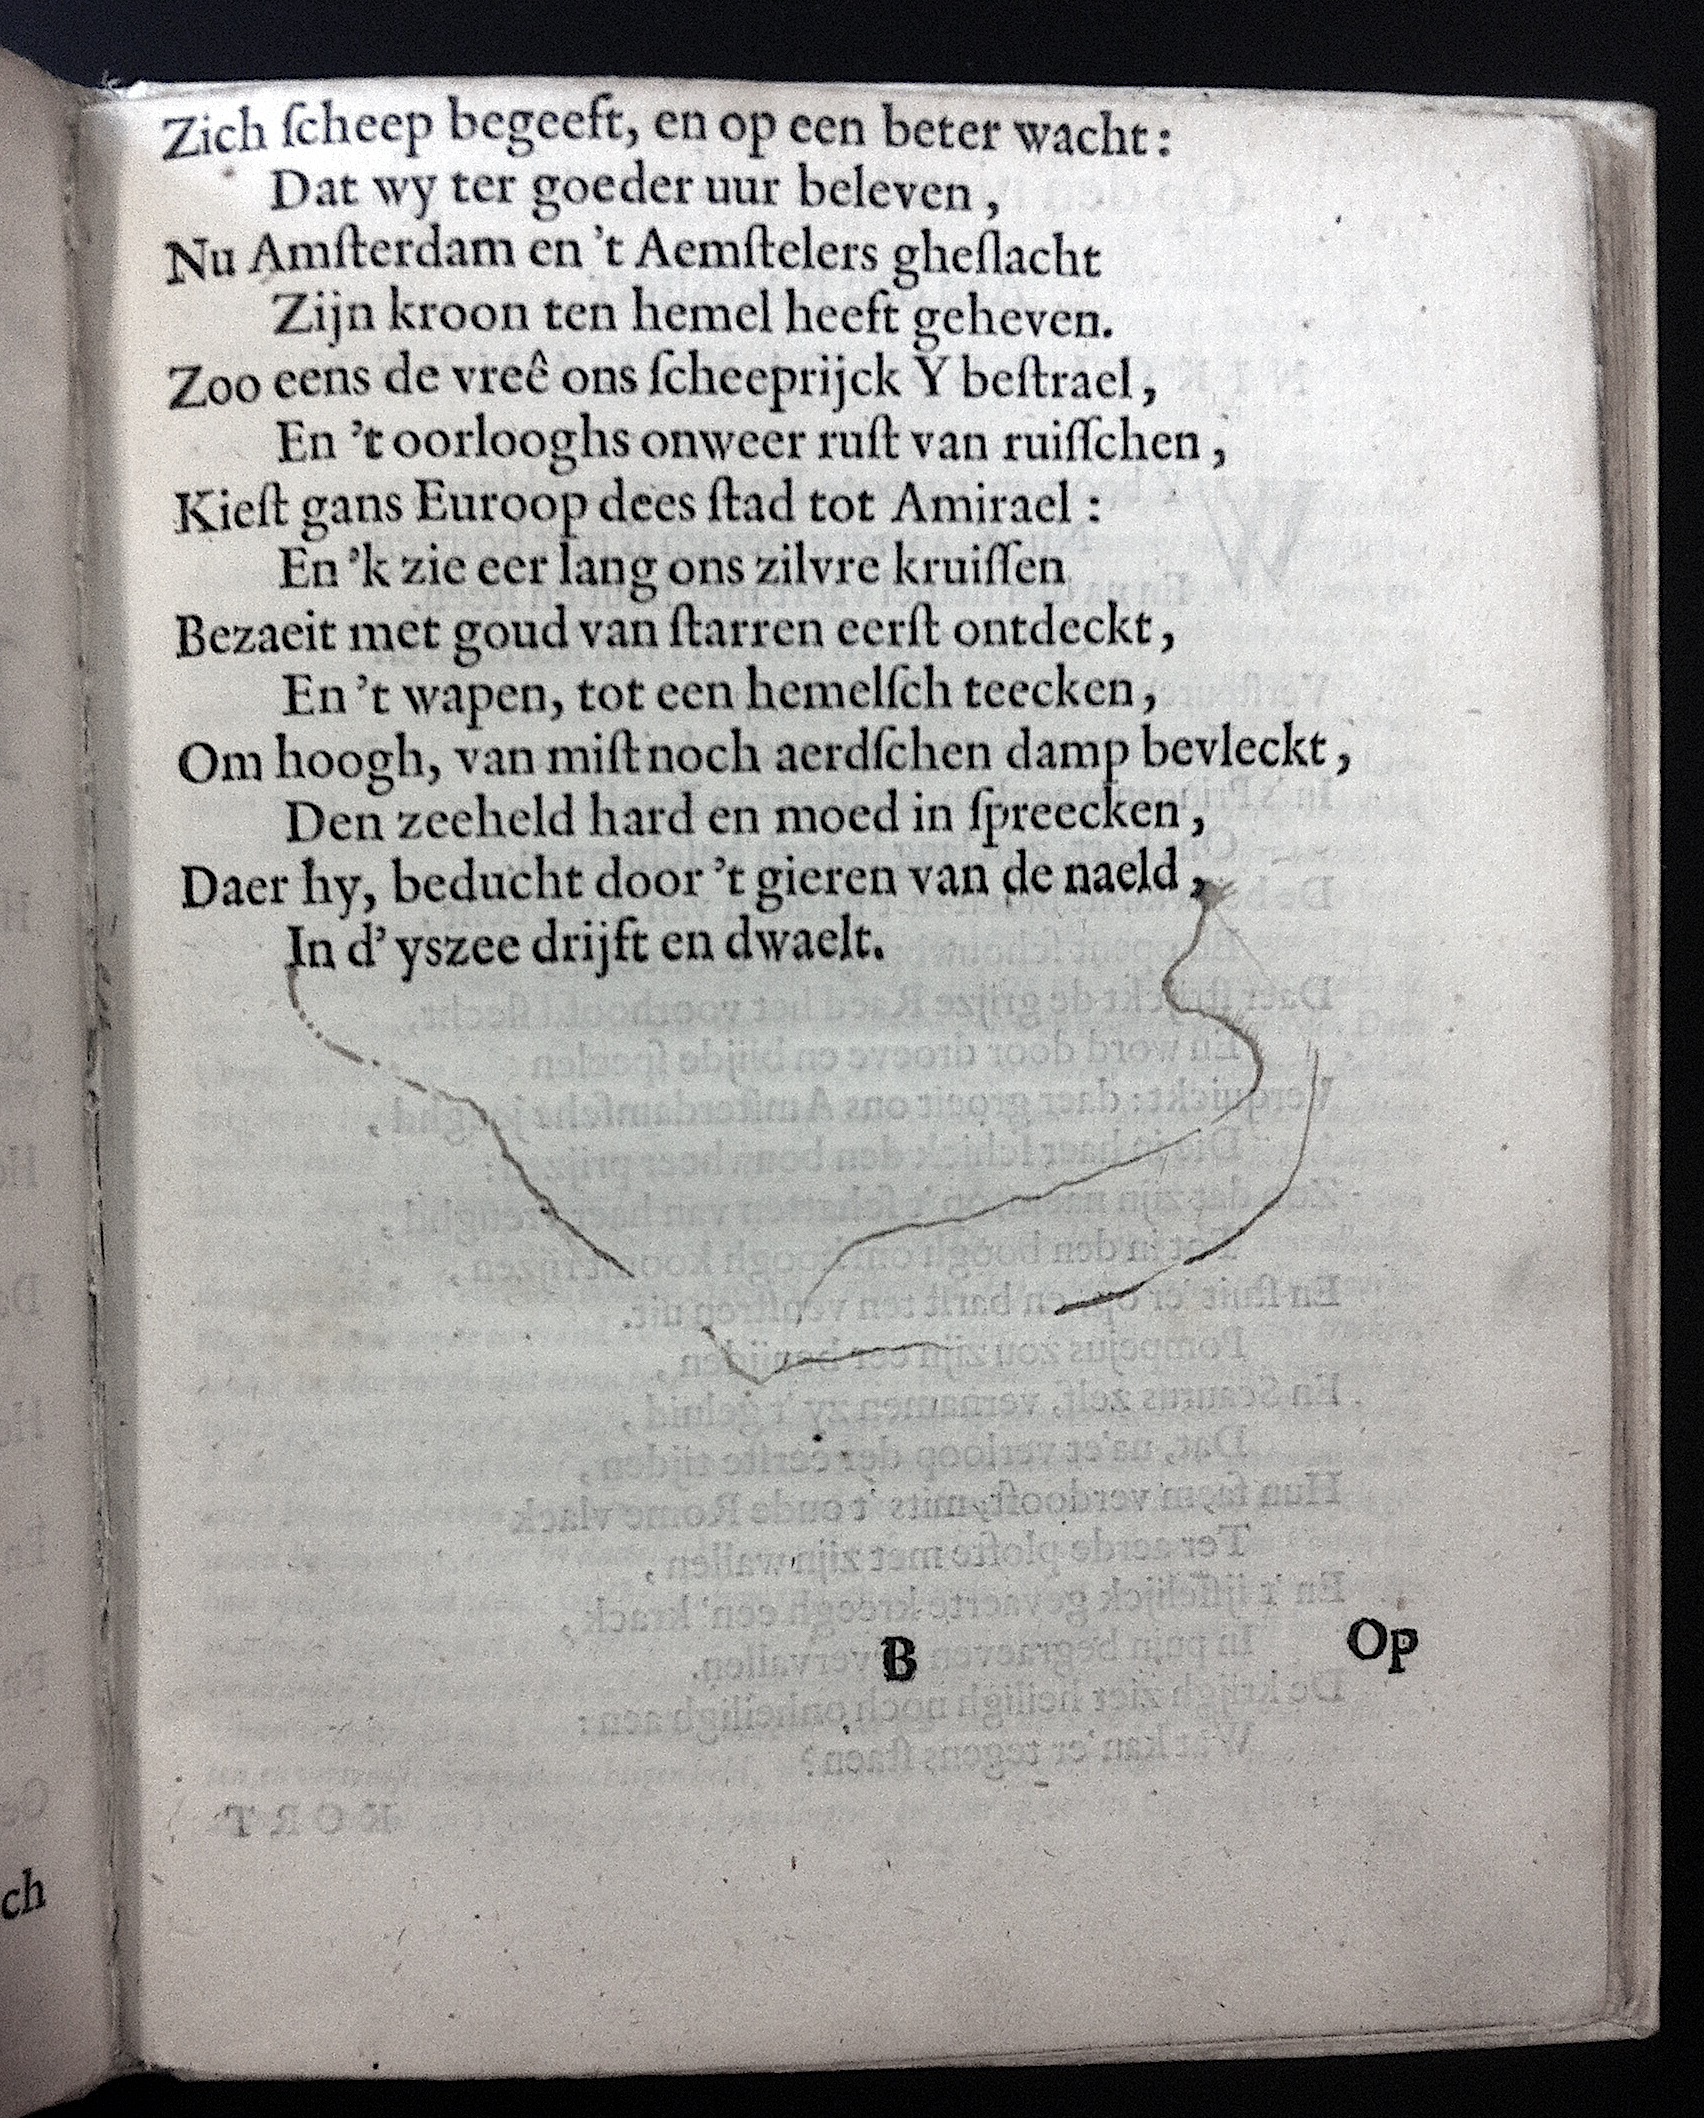 Zich ſcheep begeeft, en op een beter wacht:
Dat wy ter goeder uur beleven,
Nu Amſterdam en 't Aemſtelers gheſlacht
Zijn kroon ten hemel heeft geheven.
Zoo eens de vreê ons ſcheeprijck Y beſtrael,
En 't oorlooghs onweer ruſt van ruiſſchen,
Kieſt gans Euroop dees ſtad tot Amirael:
En 'k zie eer lang ons zilvre kruiſſen
Bezaeit met goud van ſtarren eerſt ontdeckt,
En 't wapen, tot een hemelſch teecken,
Om hoogh, van miſt noch aerdſchen damp bevleckt,
Den zeeheld hard en moed in ſpreecken,
Daer hy, beducht door 't gieren van de naeld,
In d' yszee drijft en dwaelt.
B
Op
ch